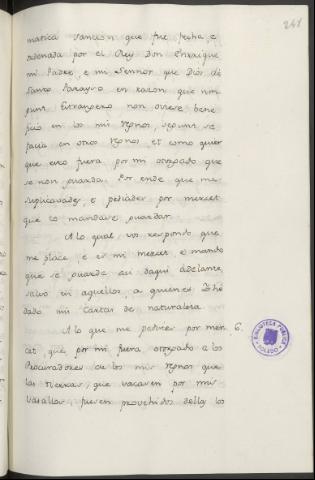 241
matica sancion que fue fecha, e
ordenada por el Rey Don Enrrique
mi Padre, e mi Sennor que Dios dé
Santo Parayso en razon que nin
gunt Extrangero non oviese bene
ficio en los mis regnos, segunt se
facia en otros regnos et como quier
que esto fuera, por mi otorgado que
se non guarda. Por ende que me
suplicavades, e pediades por merced
que lo mandase guardar.
A lo qual vos respondo que
me place, e es mi merced, e mando
que se guarde asi daqui adelante,
salvo en aquellos, a quienes Yo hé
dado mi Cartas de naturaleza.
A lo que me pedistes por mer 6.
ced, que, por mi fuera, otorgado a los
Procuradores de los mis regnos que
las tierras, que vacaren por mis
Vasallos, fuesen provehidos dellas los
BIBLIOTECA PUBLICA
TOLEDO